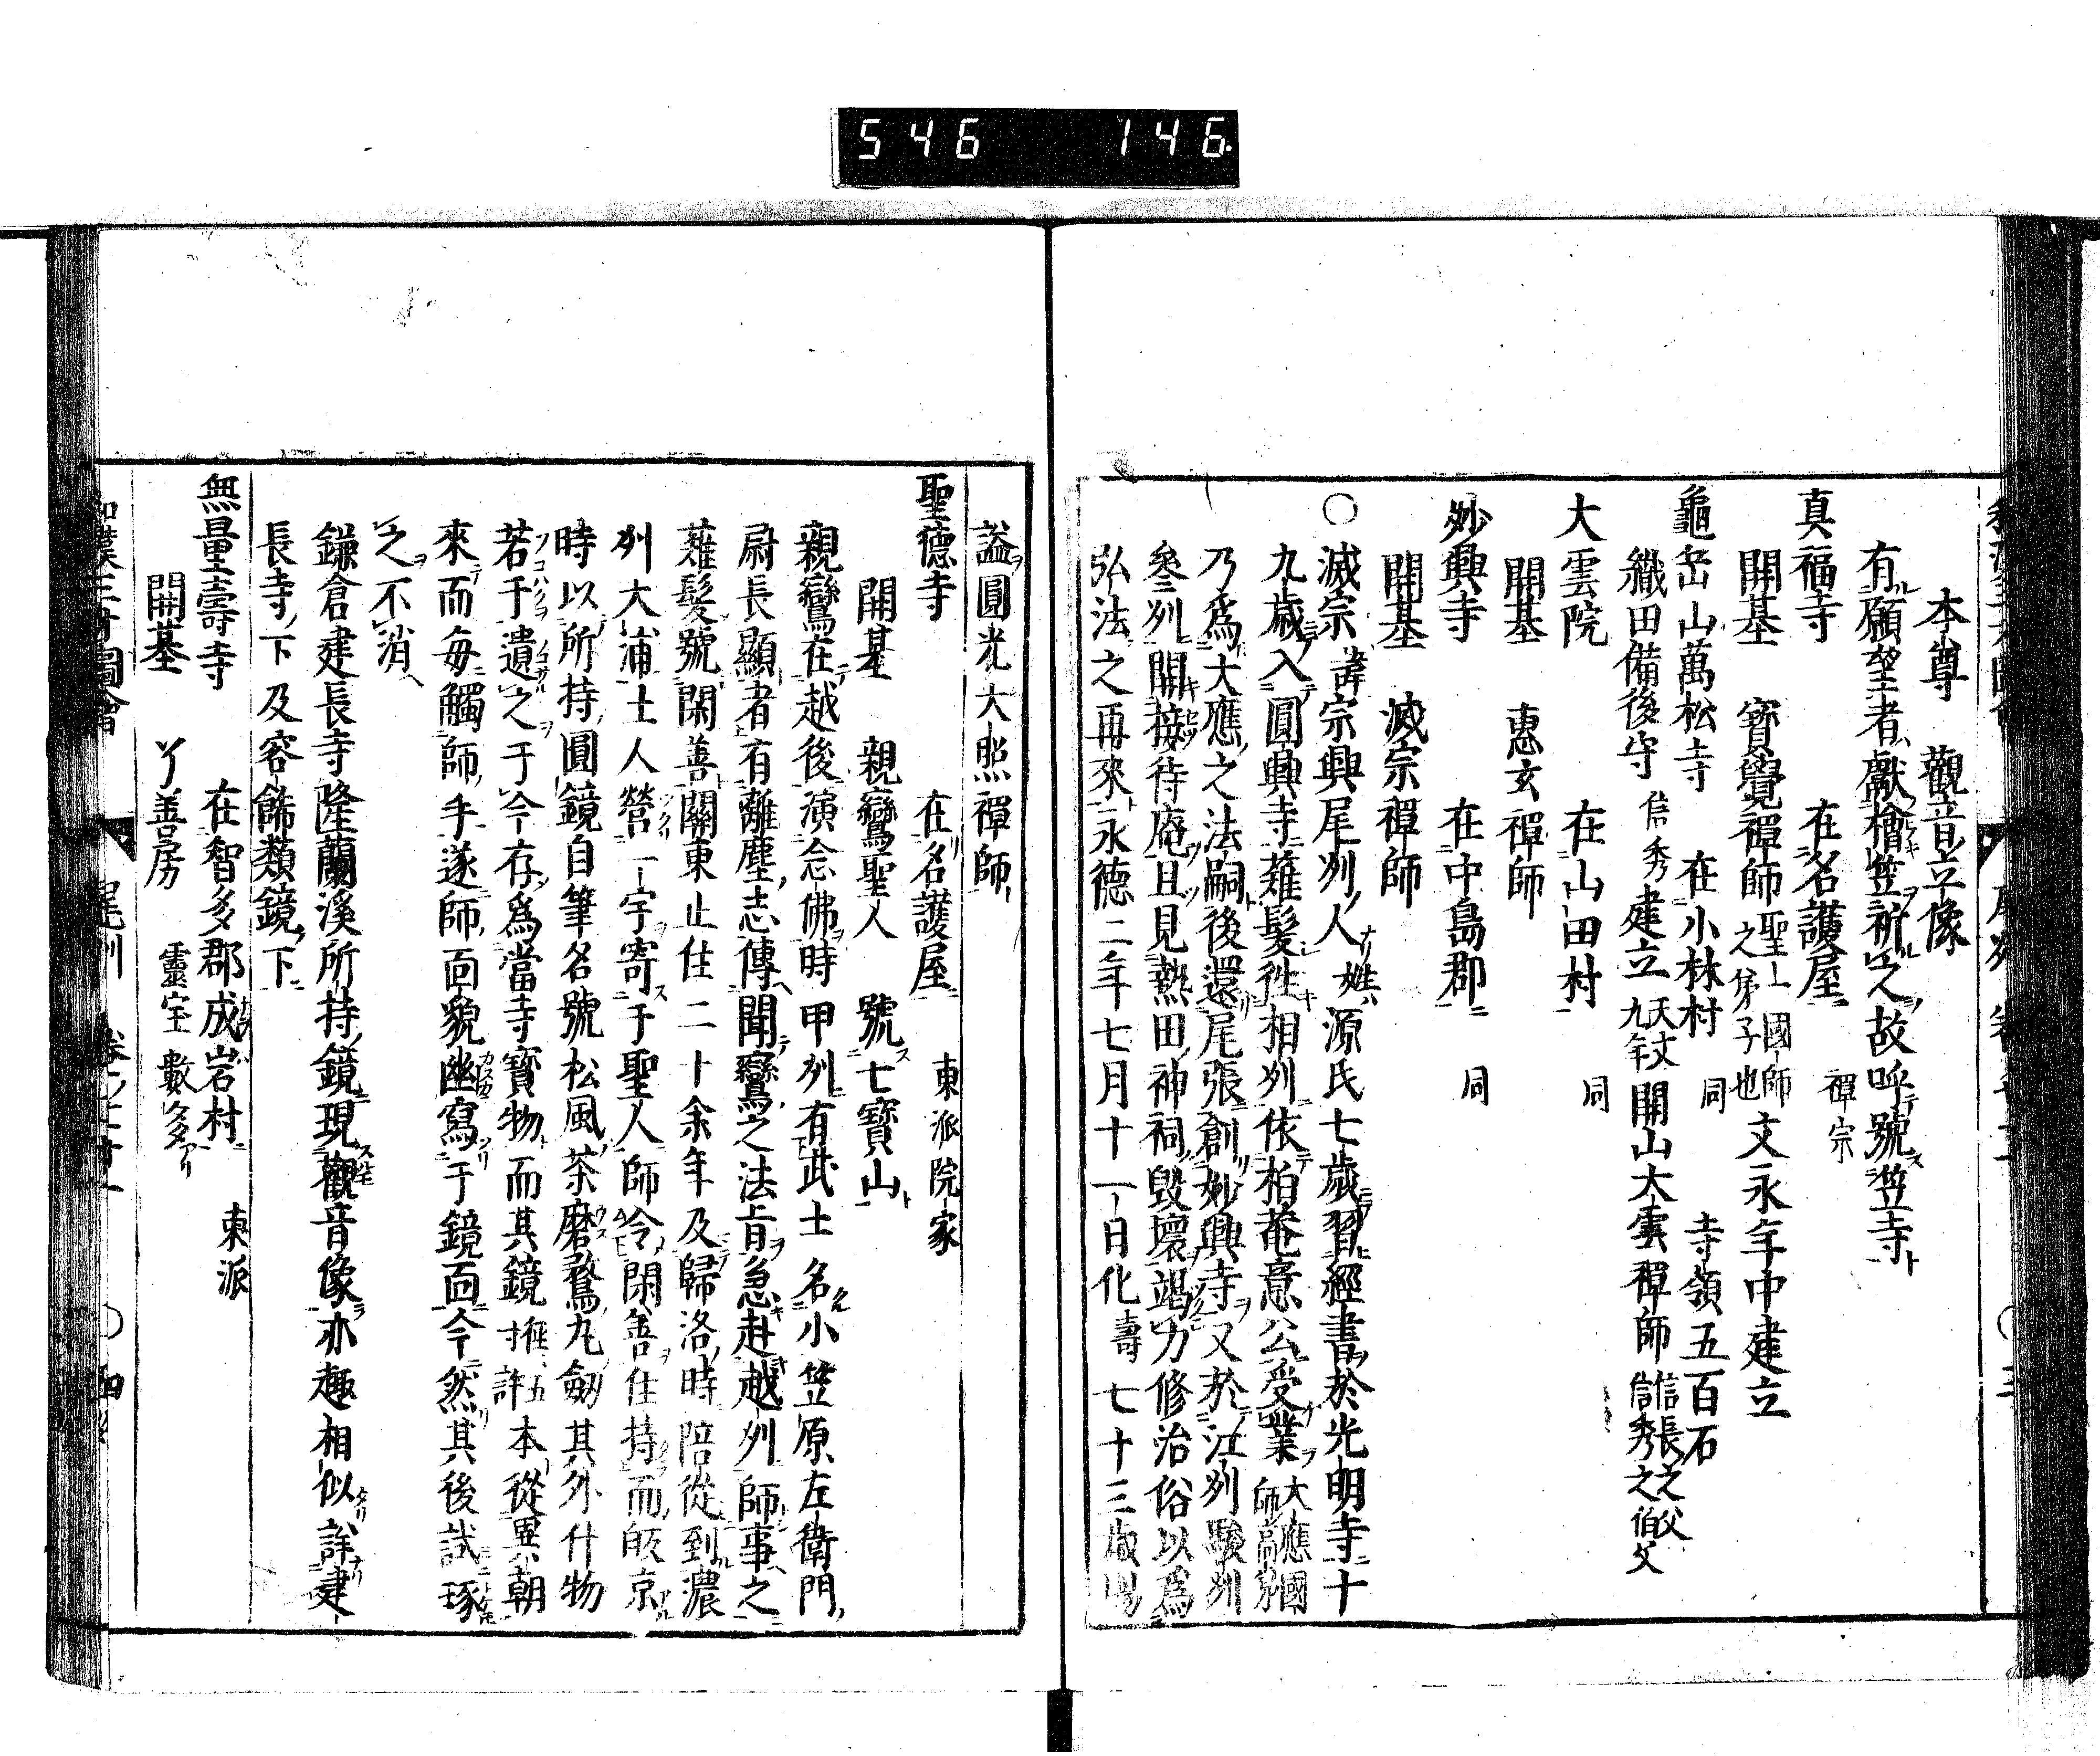 546 146
本尊 觀音立像
有願望者獻檜笠祈之故呼號笠寺
真福寺 在名護屋 禪宗
開基 寶覺禪師 聖一國師之弟子也 文永年中建立
龜岳山萬松寺 在小林村 同 寺領五百石
織田備後守信秀建立 天文九年 開山大雲禪師 信張之父信秀之伯父
大雲院 在山田村 同
開基 惠玄禪師
妙興寺 在中島郡 同
開基 滅宗禪師
○滅宗諱宗興尾刕人姓源氏七歲習經書於光明寺十
九歲入圓興寺薙髮徃相刕依柏菴意公受業 大應國師高弟
乃爲大應之法嗣後還尾張創妙興寺又於江刕駿刕
叄刕開接待庵且見熱田神祠毀壞竭力修治俗以爲
弘法之再來永德二年七月十一日化壽七十三歲賜
謚圓光大照禪師
聖德寺 在名護屋 東派院家
開基 親鸞聖人 號七寶山
親鸞在越後演念佛時甲刕有武士名小笠原左衛門
尉長顯者有離塵志傳聞鸞之法旨急赴越刕師事之
薙髮號閑善關東止住二十余年及歸洛時陪從到濃
刕大浦士人營一宇寄于聖人師令閑善住持而皈京
時以所持圓鏡自筆名號松風茶磨鵞丸劔其外什物
若于遺之于今存爲當寺寶物而其鏡 五寸許 本從異朝
來而毎觸師手遂師面貌幽寫于鏡面今然其後試琢
之不消
鎌倉建長寺隆蘭溪所持鏡現觀音像亦趣相似 詳建
長寺下及容飾類鏡下
無量壽寺 在智多郡成岩村 東派
開基 了善房 靈宝數多
和漢三才圖會 尾州 四